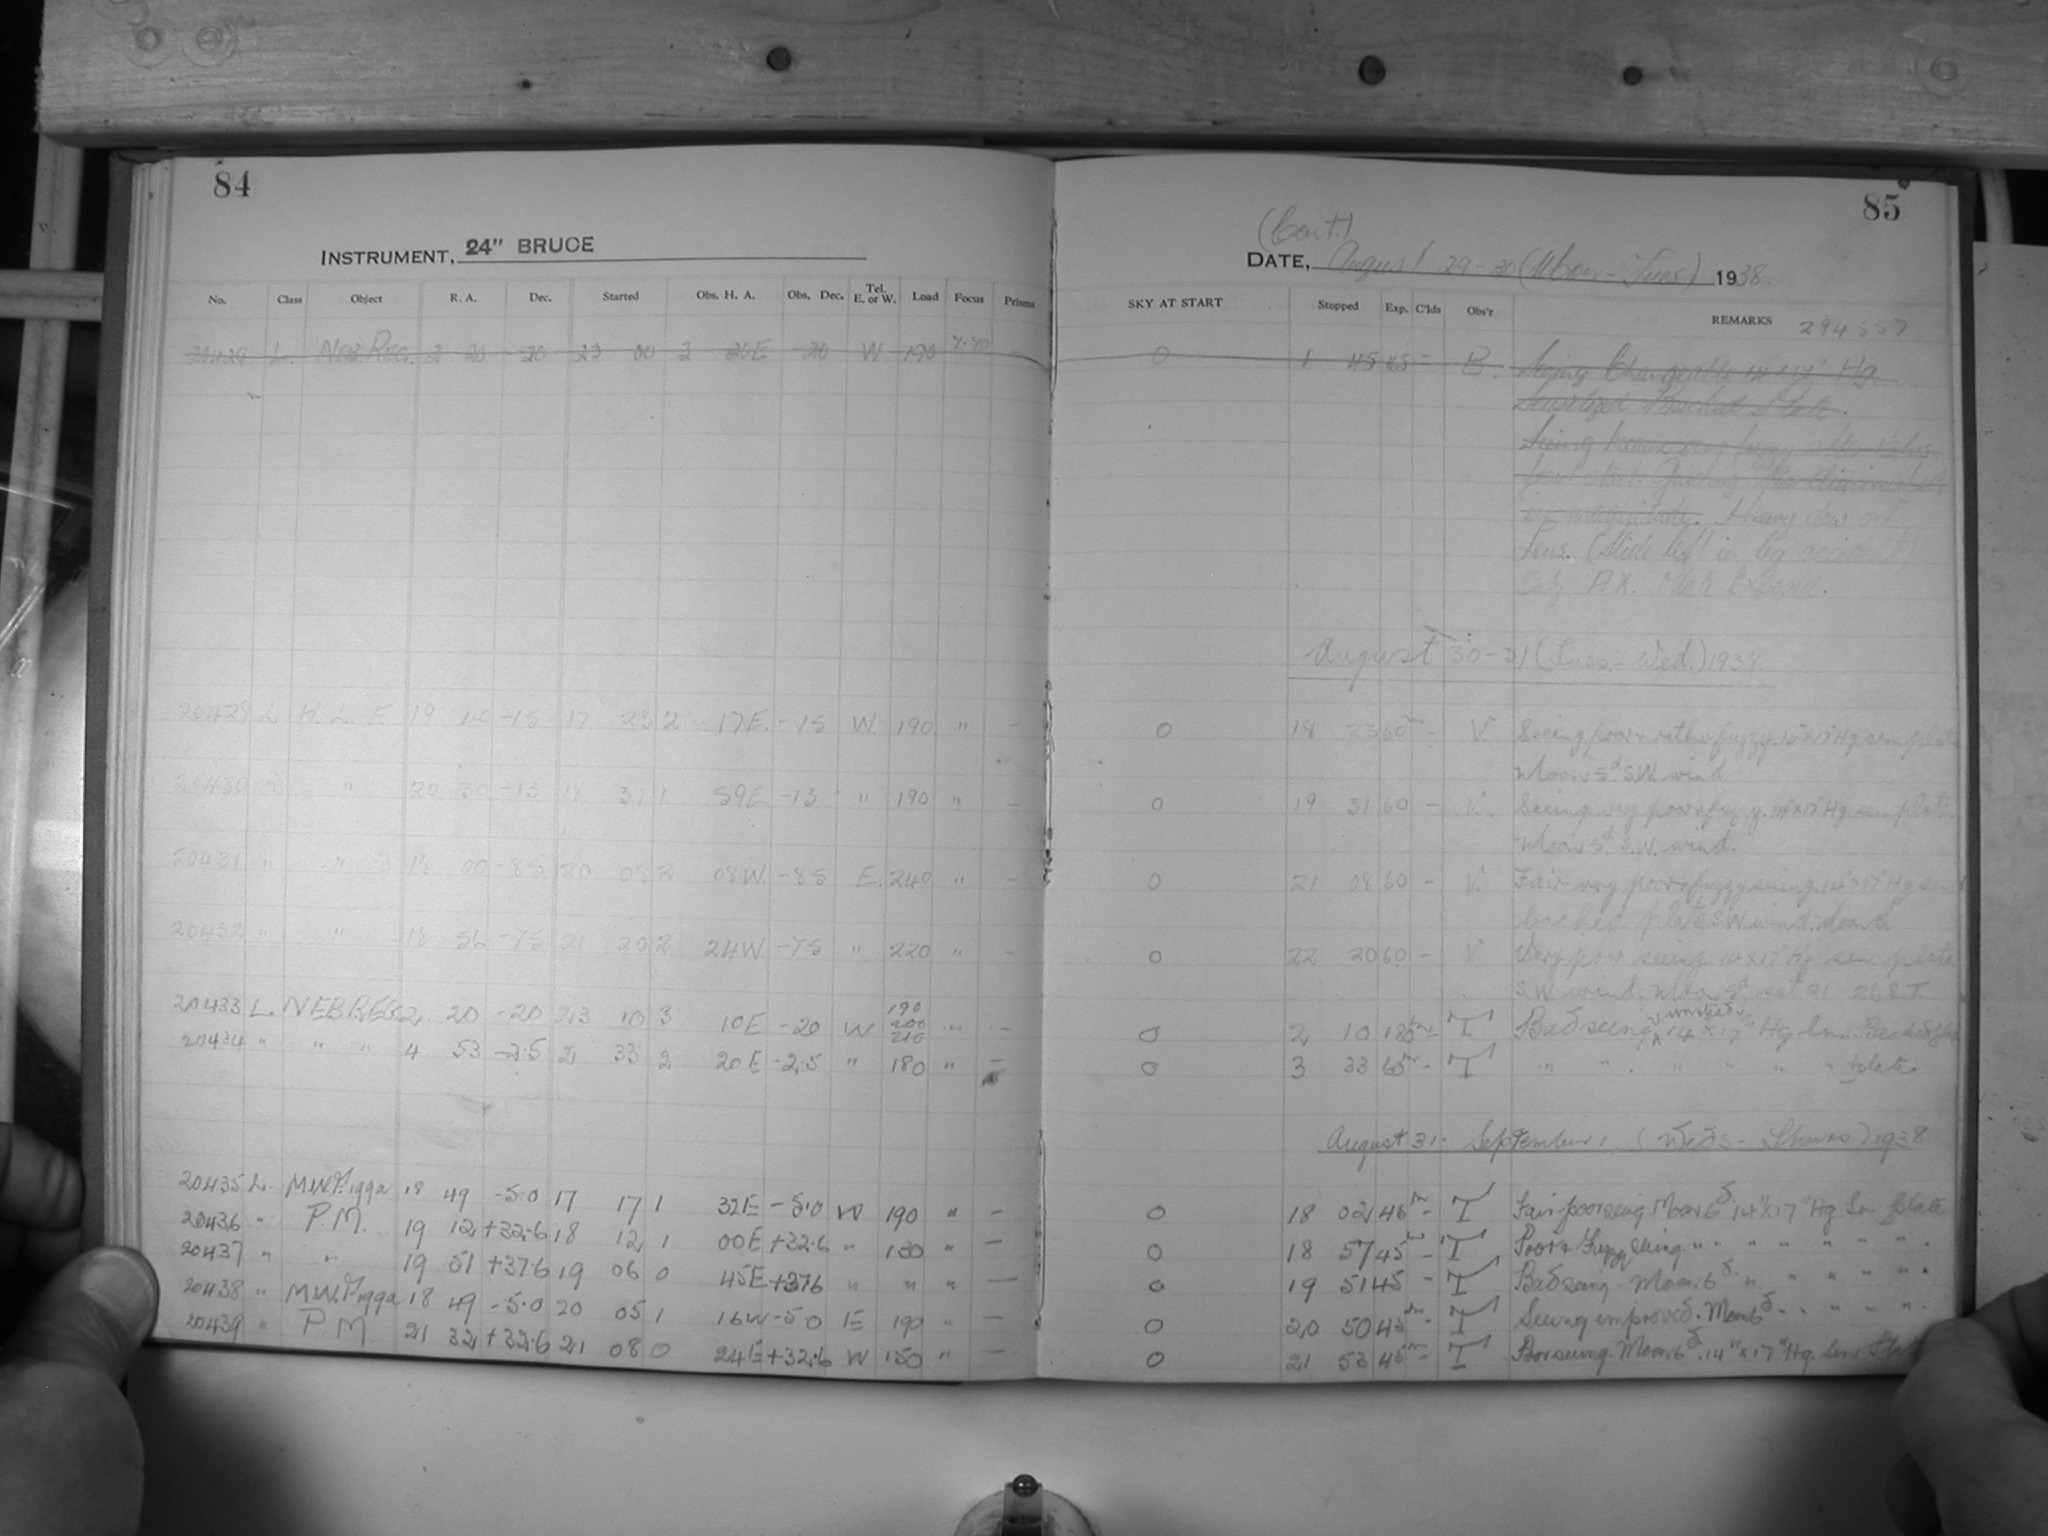 84
85
INSTRUMENT, 24" BRUCE
(Cont.)
DATE, August 29-30 (Mon - Tues) 1938.
No. Class Object R. A. Dec. Started Obs. H. A. Obs. Dec. Tel. E. or W. Load Focus Prisms SKY AT START Stopped Exp. C'lds Obs'r REMARKS 294357
20429 L. Neb Reg. 2 20 -20 23 00 3 20E -20 W. 190 7.70 - O 1 45 - B. Seeing Changeable 14" x 17" Hg
Sensitized Backed Plate.
Seeing fuzzy after
from start. Guiding diminished
in magnitude. Heavy dew on
Lens. (Slide left in by accident)
August 30-31 (Tues - Wed.) 1938
20429 L H. L. E 19 40 -15 17 23 2 17E. -15 W. 190 " - O 18 23 60m - V. Seeing poor + rather fuzzy. 14" x 17" Hg. sen. plate
Moon 5d S.W. wind
20430 " " 20 30 -13 18 31 1 59E -13 " 190 " - O 19 31 60 - V. Seeing very poor + fuzzy. 14" x 17" Hg. sen. plate.
Moon 5d. S.W. wind.
20431 " " 18 00 -85 20 08 2 08W. -85 E. 240 " - O 21 08 60 - V. Fair very poor + fuzzy seeing. 14" x 17" Hg sen
backed plate S.W. wind. Moon 5d
20432 " " 18 56 -75 21 20 2 24W. -75 " 220 " - O 22 20 60 - V Very poor seeing. 14" x 17" Hg. sen. plate
S.W. wind. Moon 5d set 21 26 S.T.
20433 L. NEB REG. 2 20 -20 23 10 3 10E -20 W 190 200 210 " - O 2 10 180m - T Bad seeing 14" x 17" Hg Sn. Backed
20434 " " " 4 53 -2.5 2 33 2 20E -2.5 " 180 " - O 3 33 60m - T " " " " " " plate.
August 31 - September 1. (Weds - Thurs) 1938
20435 L. MWF.199a 18 49 -5.0 17 17 1 32E -5.0 W 190 " - O 18 02 45m - T Fair-poor seeing Moon 6d. 14" x 17" Hg Sn. plate
20436 " P.M. 19 12 +32.6 18 12 1 00E +32.6 " 130 " - O 18 57 45m - T Poor + Fuzzy seeing " " " " " "
20437 " " 19 51 +37.6 19 06 0 45E +37.6 " " " - O 19 51 45 - T Bad seeing. Moon 6d. " " " " "
20438 " MWF.199a 18 49 -5.0 20 05 1 16W -5.0 E 190 " - O 20 50 45m - T Seeing improved. Moon 6d " " " " "
20439 " P.M. 21 32 +32.6 21 08 0 24E +32.6 W 150 " - O 21 53 45m - T Poor seeing. Moon 6d. 14" x 17" Hg. Sen. Plate